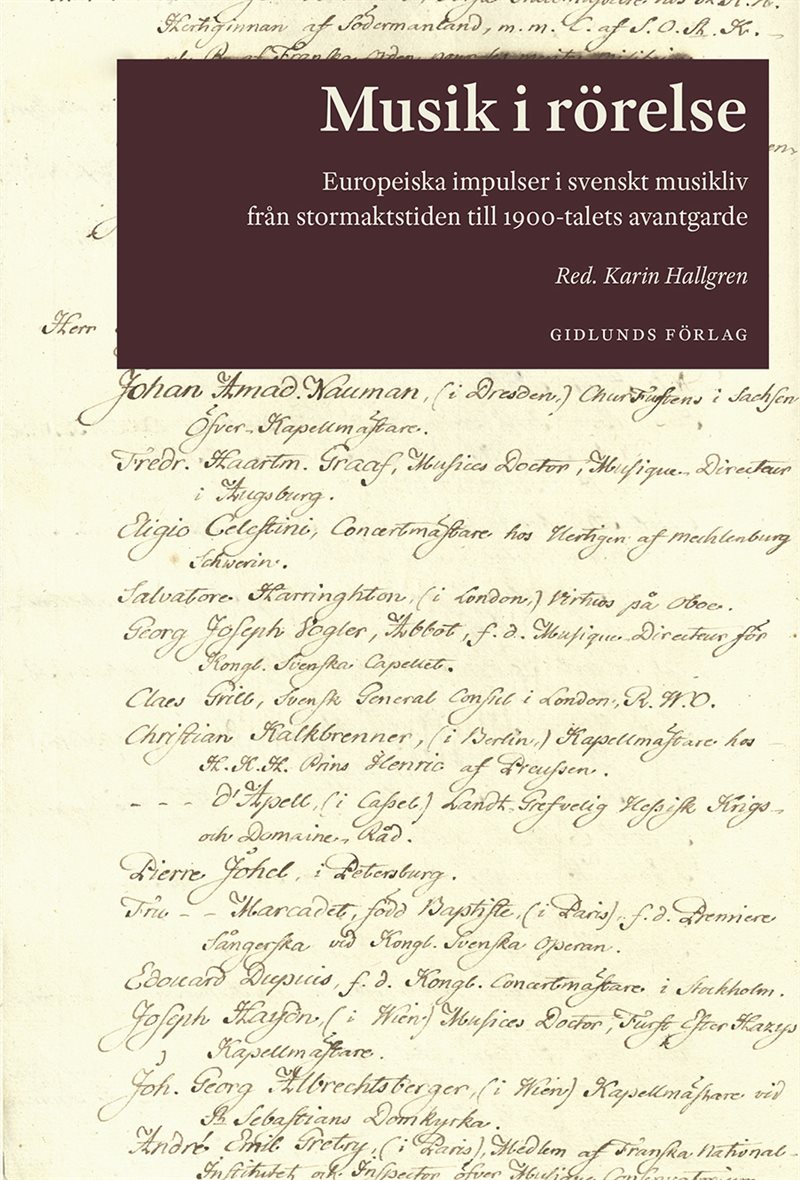 Hertiginnan af Södermanland, m. m. L. af S. O. St. K.
Musik i rörelse
Europeiska impulser i svenskt musikliv
från stormaktstiden till 1900-talets avantgarde
Red. Karin Hallgren
GIDLUNDS FÖRLAG
Herr
Johan Amad. Nauman, (i Dresden,) ChurFustens i Sachsen
Öfver-Kapellmästare.
Fredr. Haartm. Graaf, Musices Doctor, Musique-Directeur
i Augsburg.
Eligio Celestini, Concertmästare hos Hertigen af Mechlenburg
Schwerin.
Salvatore Harringhton, (i London,) Virtuos på Oboe.
Georg Joseph Vogler, Abbot, f. d. Musique-Directeur för
Kongl. Svenska Capellet.
Claes Grill, Svensk General Consul i London, R. W. O.
Christian Kalkbrenner, (i Berlin,) Kapellmästare hos
H. K. H. Prins Henric af Preussen.
- - - d'Apell, (i Cassel) Landt-Grefvelig Hessisk Krigs-
och Domaine-Råd.
Pierre Johel, i Petersburg.
Fru - - Marcadet, född Baptiste, (i Paris), f. d. Premiere
Sångerska vid Kongl. Svenska Operan.
Edouard Dupuis, f. d. Kongl. Concertmästare i Stockholm.
Joseph Haydn, (i Wien) Musices Doctor, Furst Ester Hazys
Kapellmästare.
Joh. Georg Albrechtsberger, (i Wien) Kapellmästare vid
St Sebastians Domkyrka.
André Emil Gretry, (i Paris), Medlem af Franska National-
Institutet och Inspector öfver Musique